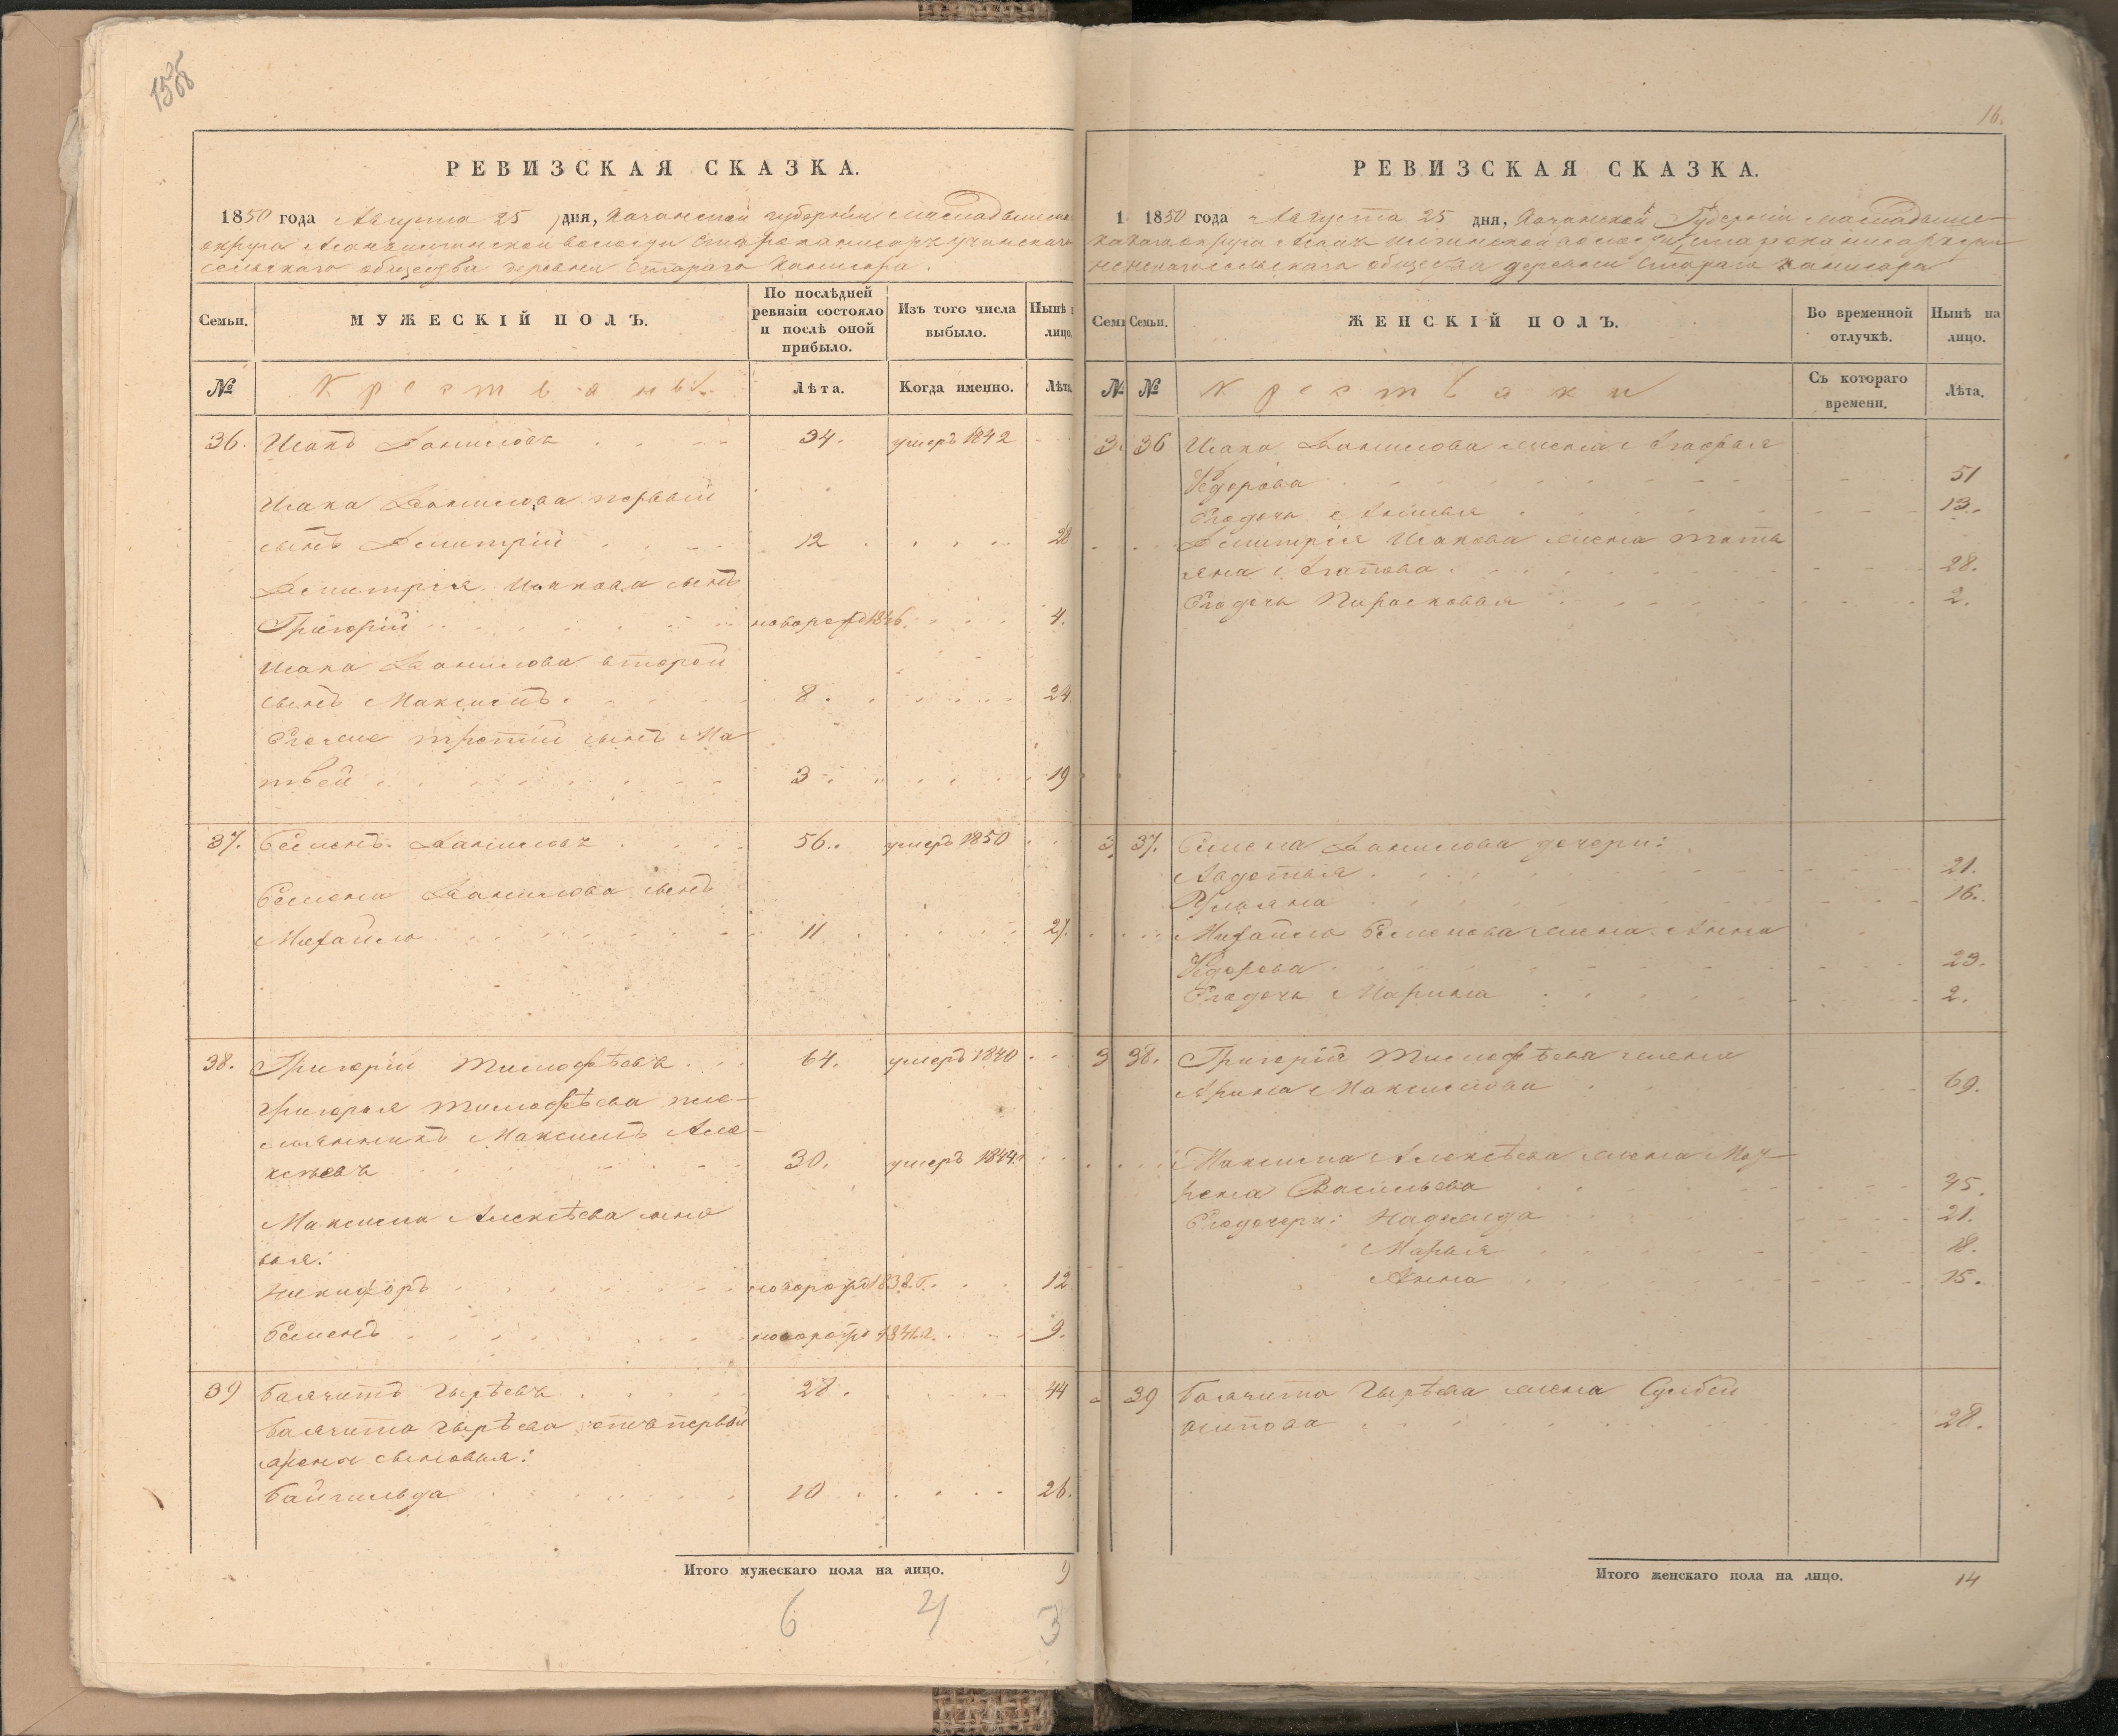 1556
РЕВИЗСКАЯ СКАЗКА.
1850 года Августа 25 дня, Казанской губерніи Мамадышска
округа
сельскаго общества деревни Стараго Канисара.
Семьи.
МУЖЕСКІЙ ПОЛЪ.
По послѣдней
ревизіи состояло
и послѣ оной
прибыло.
Изъ того числа
выбыло.
Нынѣ
лицо
№
Крестьяны
Лѣта.
Когда именно.
Лѣта
36. Исакъ Даниловъ 34. умеръ 1842
Исака Данилова первый
сынъ Дмитрій 12 28
Дмитрія Исакова сынъ
Григорій новорож 1846 4.
Исака Данилова второй
сынъ Максимъ. 8. 24
Егоже третій сынъ Ма
твѣй 3 19
37. Семенъ Даниловъ 56. умеръ 1850
Семена Данилова сынъ
Михайло 11 27.
38. Григорій Тимофѣевъ 64. умеръ 1840
Григорья Тимофѣева пле-
мянникъ Максимъ Але-
ксѣевъ 30. умеръ 1844.
Максима Алексѣева сыно
вья:
Никифоръ новорож 1838.г. 12
Семенъ новорож 1841.г. 9.
39 28. 44
первой
жены сыновья:
Байгильда 10 26.
Итого мужескаго пола на лицо. 9
6 4 3
16.
РЕВИЗСКАЯ СКАЗКА.
1 1850 года Августа 25 дня, Казанской Губерніи Мамадыш-
скаго округа
сельскаго общества деревни Стараго Канисара
Сем
Семьи.
ЖЕНСКІЙ ПОЛЪ.
Во временной
отлучкѣ.
Нынѣ на
лицо.
№ №
Крестьяки
Съ котораго
времени.
Лѣта.
3 36 Исака Данилова жена Агафья
Федорова 51
Егодочь 13.
Дмитрія Исакова жена Татъ
яна Агапова 28.
Егодочь Парасковья 2.
3 37. Семена Данилова дочери:
Авдотья 21.
Ульяна 16.
Михайло Семенова жена Анна
Федорова 23.
Егодочь Марина 2.
3 38. Григорія Тимофѣева жена
Арина Максимова 69.
Максима Алексѣева жена Мау-
рена Васильева 45.
Егодочери: Надежда 21.
Марья 18.
Анна 15.
39 жена
Осипова 28.
Итого женскаго пола на лицо. 14